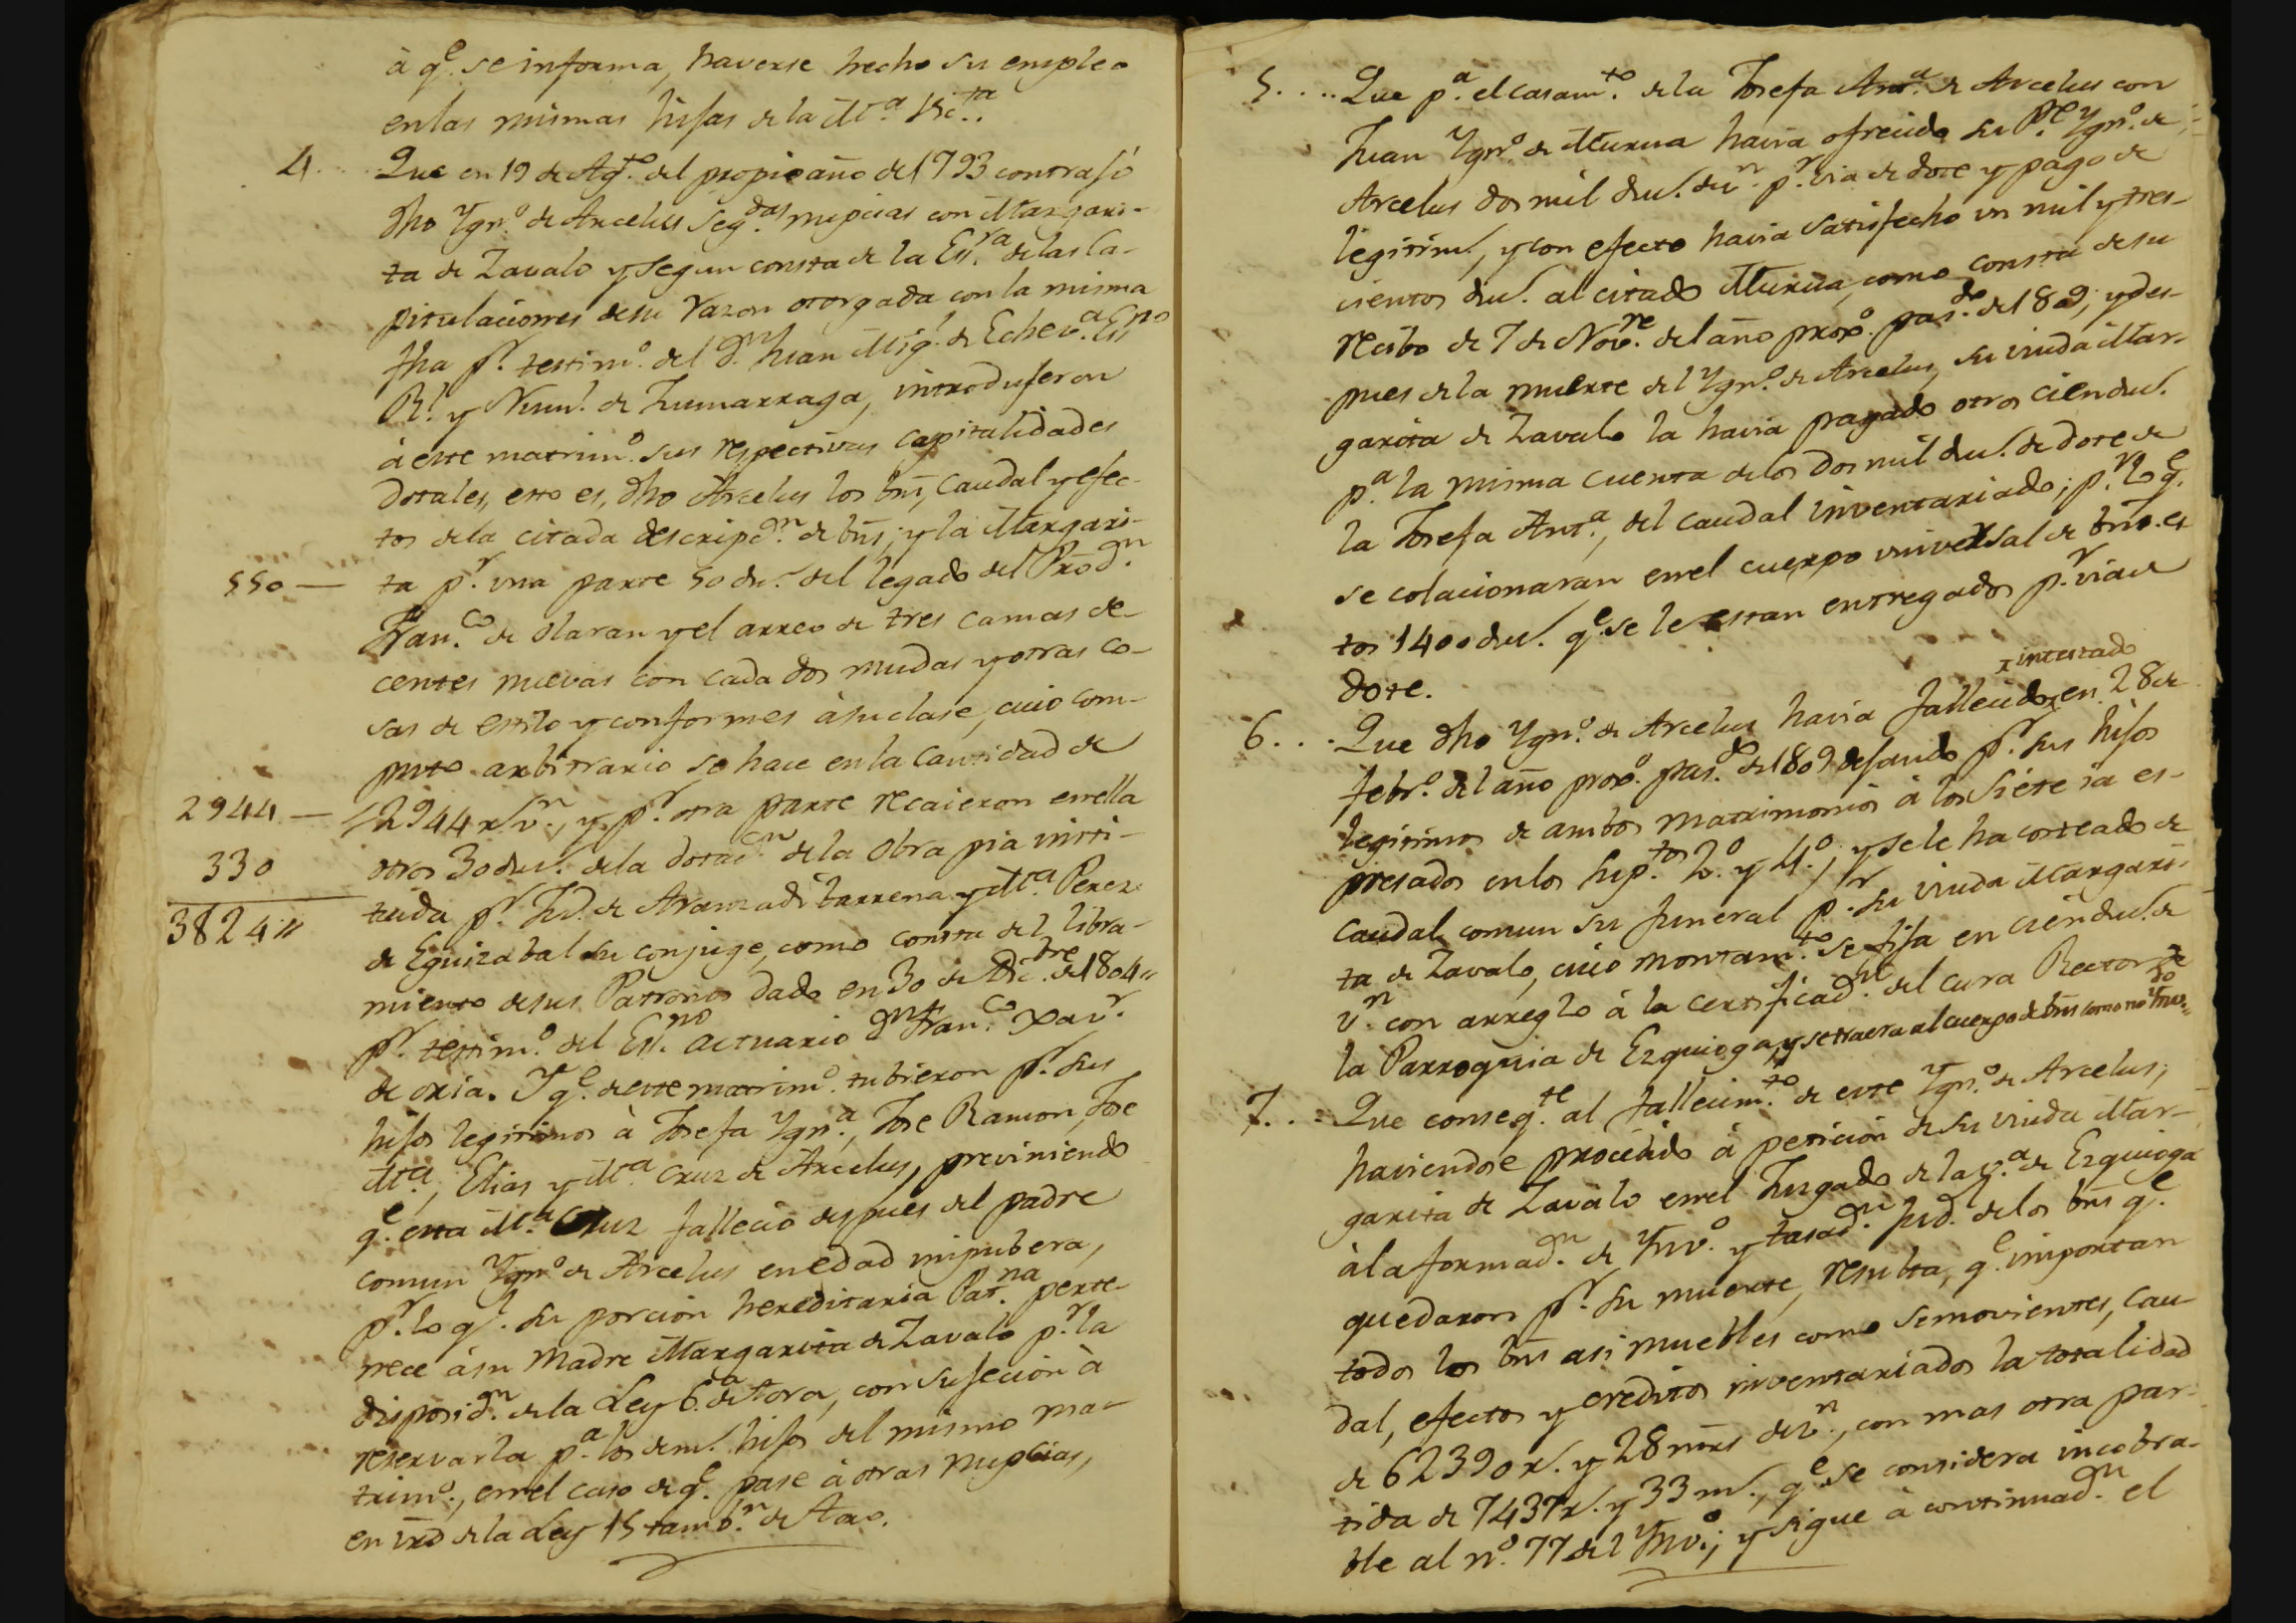 à q.e se informa, haverse hecho su empleo
en las mismas hijas de la M.a Vic.ta
4... Que en 19 de Ag.to del propio año de 1793 contrajó
dho Ygn.o de Arcelus seg.das nupcias con Margari-
ta de Zavalo y segun consta de la Es.ra de las Ca-
pitulaciones de su razon otorgada con la misma
fha p.r testim.o del D.n Juan Mig.l de Echev.a Es.no
R.l y Num.l de Zumarraga, introdujeron
à este matrim.o sus respectivas capitalidades
dotales, esto es, dho Arcelus los bns, caudal y efec-
tos de la citada descripc.n de bns; y la Margari-
550 — ta p.r una parte 50 du.s del legado del Pro d.n
Fran.co de Olaran y el arreo de tres camas de-
centes nuevas con cada dos mudas y otras co-
sas de estilo y conformes à su clase, cuio com-
puto arbitrario se hace en la cantidad de
2944 — 2944 r.s v.n, y p.r otra parte recaieron en ella
330 otros 30 du.s de la dotac.n de la obra pia insti-
tuida p.r Ju.o de Aramzadibarrena y M.a Perez
3824 ,, de Eguizabal su conjuge, como consta del libra-
miento de sus Patronos dado en 30 de Dic.bre de 1804 ,,
p.r testim.o del Es.no actuario D.n Fran.co Xav.r
de Oria. Y q.e de este matrim.o tubieron p.r sus
hijos legitimos à Josefa Ygn.a, Jose Ramon, Jose
M.a, Elias y M.a Cruz de Arcelus, previniendo
q.e esta M.a Cruz fallecio despues del padre
comun Ygn.o de Arcelus en edad impubera,
p.r lo q.e su porcion hereditaria Pat.na perte-
nece à su Madre Margarita de Zavalo p.r la
disposic.n de la Ley 6.a de Toro, con sujecion à
reservarla p.a los dem.s hijos del mismo ma-
trim.o, en el caso de q.e pase à otras nupcias,
en vrd de la Ley 15 tamb.n de Toro.
5.... Que p.a el casam.to de la Josefa Ant.a de Arcelus con
Juan Ygn.o de Murua havia ofrecido su P.e Ygn.o de
Arcelus dos mil du.s de v.n p.r via de dote y pago de
legitim.s, y con efecto havia satisfecho un mil y tres-
cientos du.s al citado Murua, como consta de su
recibo de 7 de Nov.re del año prox.o pas.do de 1809; y des-
pues de la muerte del Ygn.o de Arcelus, su viuda Mar-
garita de Zavalo la havia pagado otros cien du.s
p.a la misma cuenta de los dos mil du.s de dote de
la Josefa Ant.a, del caudal inventariado; p.r lo q.e
se colacionaran en el cuerpo universal de bns es-
tos 1400 du.s q.e se le estan entregados p.r via de
dote.
x intestado
6... Que dho Ygn.o de Arcelus havia fallecido x en 28 de
Febr.o del año prox.o pas.do de 1809 dejando p.r sus hijos
legitimos de ambos matrimonios à los siete ia es-
presados en los sup.tos 2.o y 4.o, y se le ha costeado de
caudal comun su funeral p.r su viuda Margari-
ta de Zavalo, cuio montam.to se fija en cien du.s de
v.n con arreglo à la certificac.n del cura Rector de
la Parroquia de Ezquioga, y se traera al cuerpo de bns como no Ynv.do
7... Que conseq.te al fallecim.to de este Ygn.o de Arcelus,
haviendose procedido à peticion de su viuda Mar-
garita de Zavalo en el Juzgado de la v.a de Ezquioga
à la formac.n de Ynv.o y tasac.n jud.l de los bns q.e
quedaron p.r su muerte, resulta, q.e importan
todos los bns asi muebles como semovientes, cau-
dal, efectos y creditos inventariados la totalidad
de 62390 r.s y 28 mrs de v.n, con mas otra par-
tida de 7437 r.s y 33 m.s, q.e se considera incobra-
ble al n.o 77 del Ynv.o; y sigue à continuac.n el